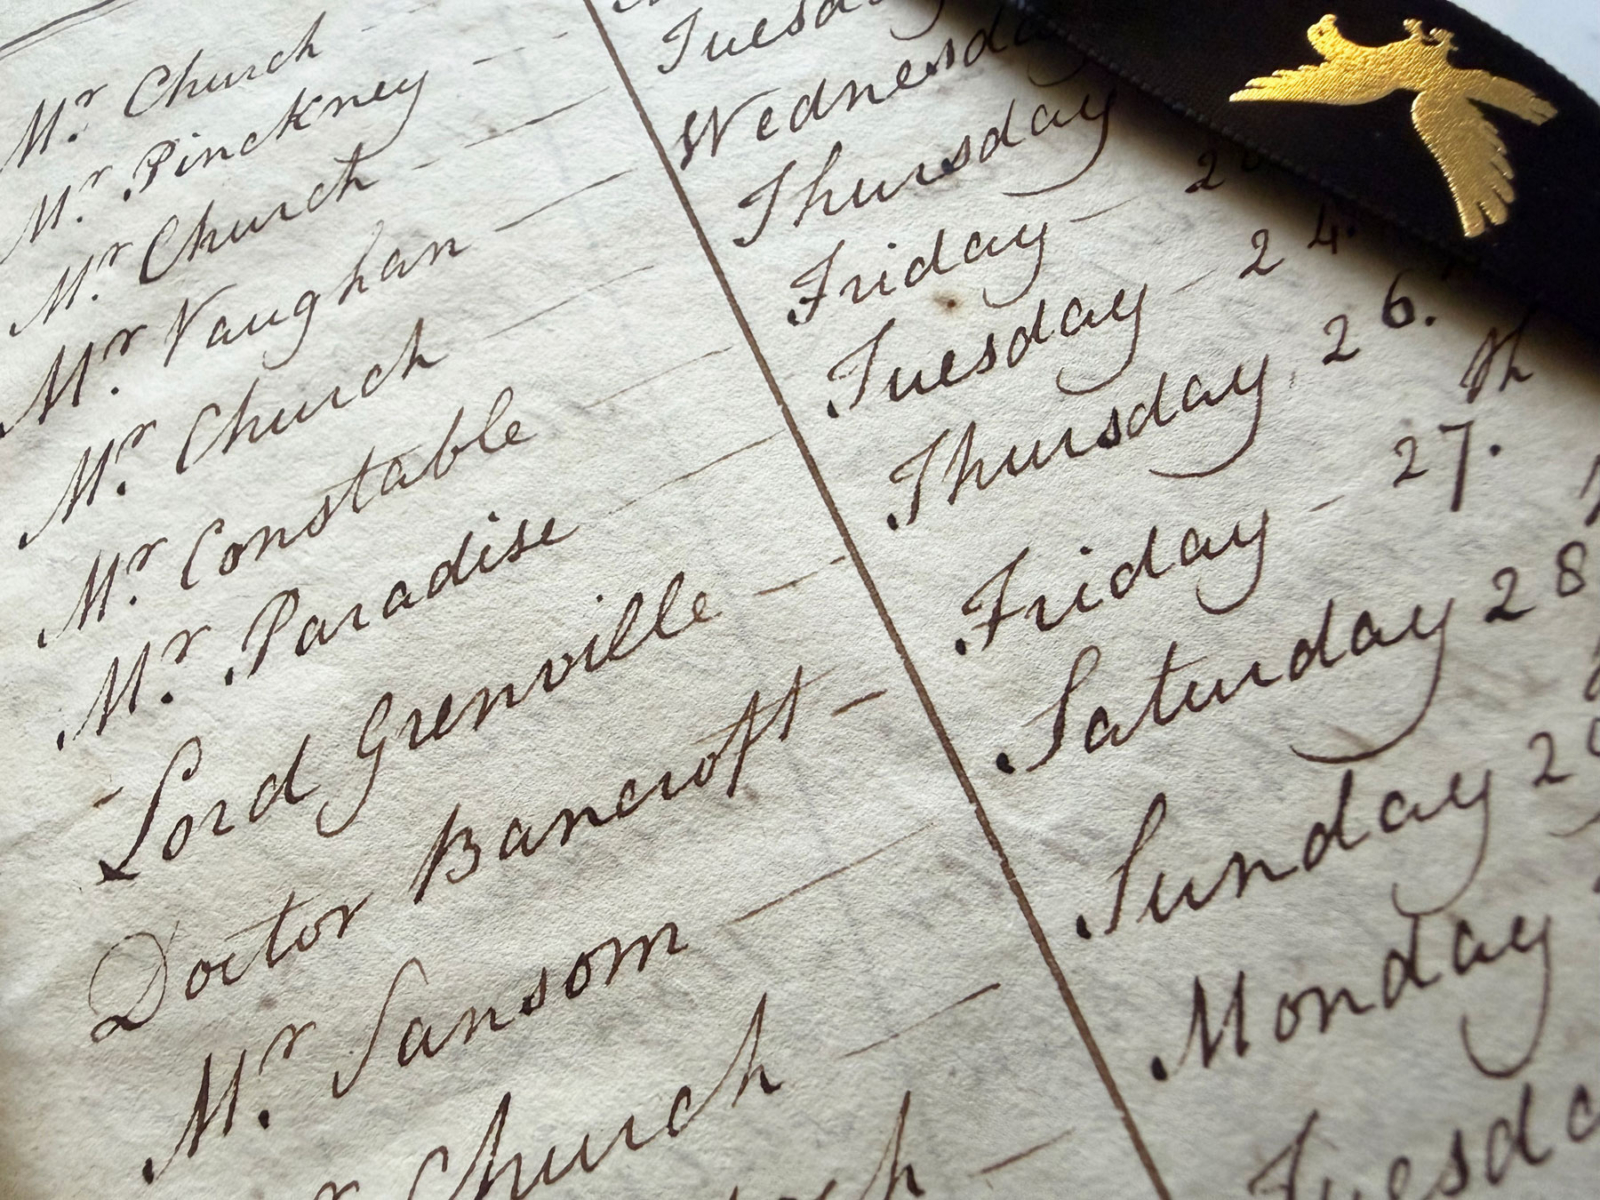 Mr. Church
Mr. Pinckney
Mr. Church
Mr. Vaughan
Mr. Church
Mr. Constable
Mr. Paradise
Lord Grenville
Doctor Bancroft
Mr. Sansom
Church
Wednesday
Thursday
Friday
Tuesday 24.
Thursday 26.
Friday 27. th
Saturday 28
Sunday
Monday